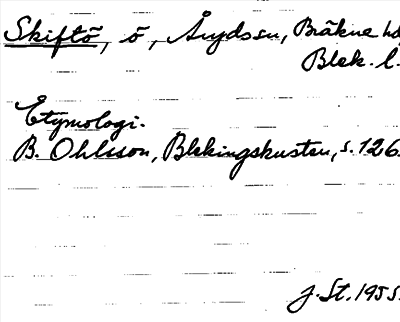 Skiftö, ö, Åryds sn, Bräkne hd
Blek. l.
Etymologi.
B. Ohlsson, Blekingskusten, s. 126.
J. St. 1955.